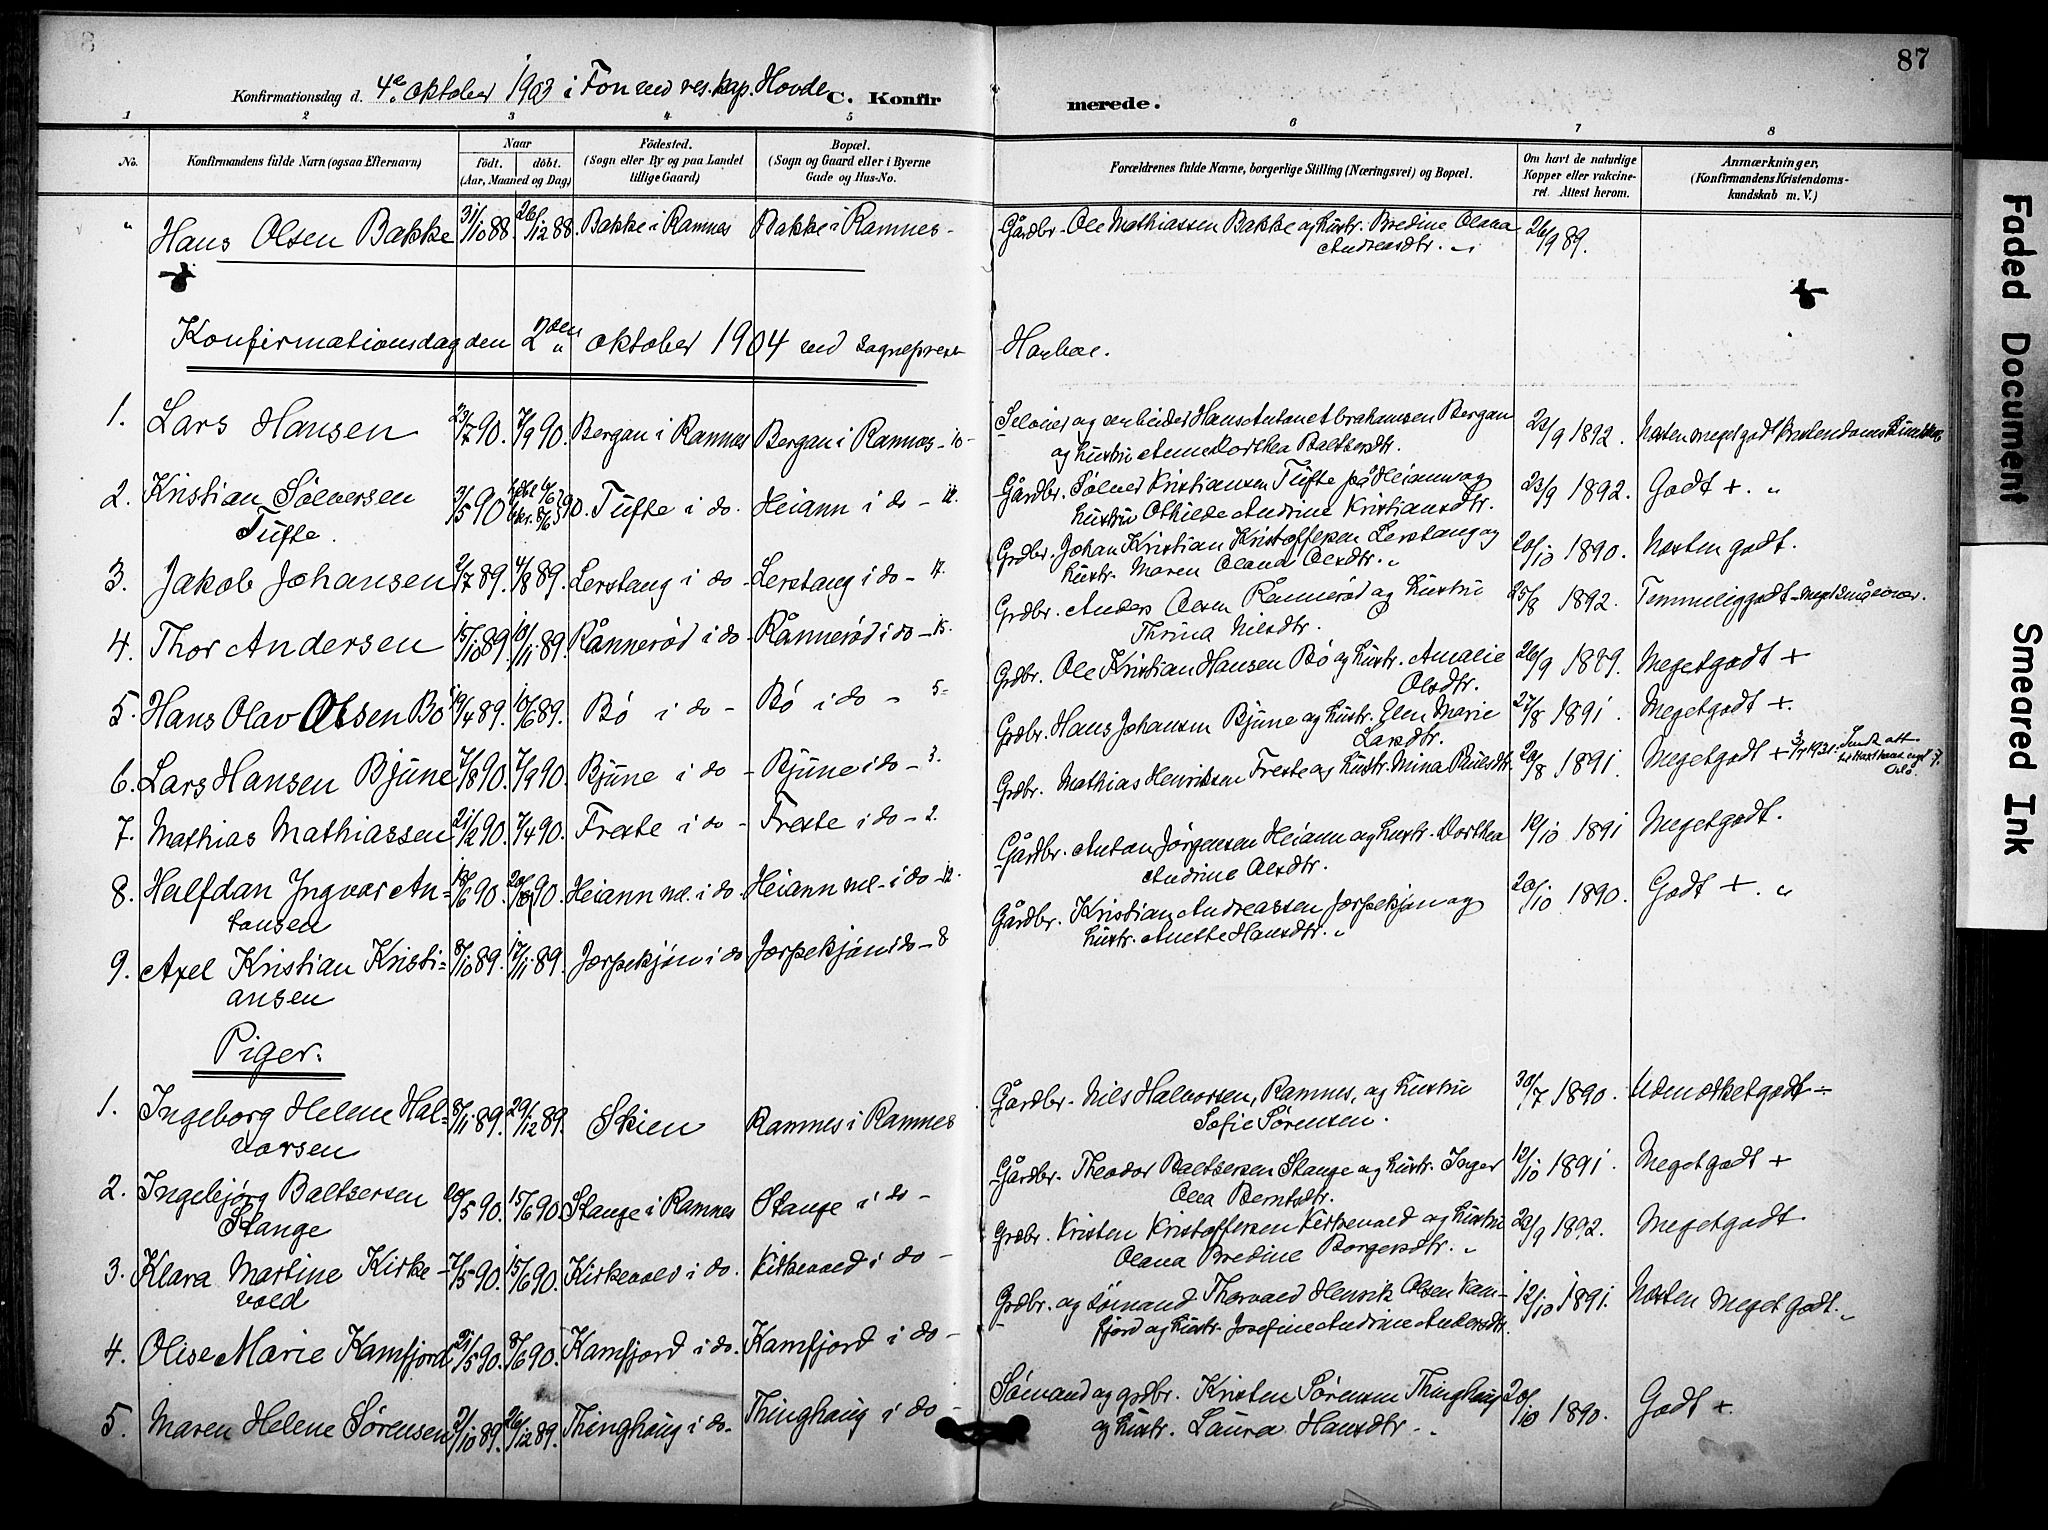 87
Konfirmationsdag d. 4de oktober 1903 i Fon ved res. kap. Hovde C. Konfirmerede.
1 2 3 4 5 6 7 8
No. Konfirmandens fulde Navn (ogsaa Efternavn) Naar født. døbt. (Aar, Maaned og Dag) Fødested. (Sogn eller By og paa Landet tillige Gaard) Bopæl. (Sogn og Gaard eller i Byerne Gade og Hus-No. Forældrenes fulde Navne, borgerlige Stilling (Næringsvei) og Bopæl. Om havt de naturlige Kopper eller vakcineret. Attest herom. Anmærkninger, (Konfirmandens Kristendomskundskab m. V.)
" Hans Olsen Bakke 31/10 88. 26/12 88. Bakke i Ramnes Bakke i Ramnes - Gårdbr. Ole Mathiassen Bakke og hustr. Bredine Olava 26/9 89.
Andreasdtr. "
Konfirmationsdag den 2den oktober 1904 ved sogneprest
1. Lars Hansen 23/7 90. 7/9 90. Bergan i Ramnes Bergan i Ramnes - 10 - Selveier og arbeider Hans Anton Abrahamsen Bergan 23/9 1892. Næsten meget god kristendomskundskab
og hustru Anne Dorthea Baltsersdtr.
2. Kristian Sølversen 3/5 90 90. Tufte i do. Heiann i do - 12. Gårdbr. Sølver Kristiansen Tufte på Heiann og 23/9 1892. Godt +. "
Tufte. hustru Othilde Andrine Kristiansdtr.
3. Jakob Johansen 2/7 89. 4/8 89. Lerstang i do - Lerstang i do - 17. Grdbr. Johan Kristian Kristoffersen Lerstang og 20/10 1890. Næsten godt.
hustr. Maren Olava Olsdtr. "
4. Thor Andersen 15/10 89. 10/11 89. Rånnerød i do - Rånnerød i do - 15. Grdbr. Anders Olsen Rånnerød og hustru 25/8 1892. Temmelig godt - meget småvoxen.
Thrina Nilsdtr.
5. Hans Olav Olsen Bø 19/4 89. 10/6 89. Bø i do - Bø i do - 5 - Grdbr. Ole Kristian Hansen Bø og hustr. Amalie 26/9 1889. Meget godt +
Olsdtr.
6. Lars Hansen Bjune 7/8 90. 7/9 90. Bjune i do - Bjune i do - 3. Grdbr. Hans Johansen Bjune og hustr. Elen Marie 27/8 1891. Meget godt +.
Larsdtr.
7. Mathias Mathiassen 21/2 90. 7/4 90. Freste i do - Freste i do - 2. Grdbr. Mathias Henriksen Freste og hustr. Mina Paulsdtr. 20/8 1891. Meget godt + 3/7 1931: Sendt att.
Oslo.
8. Halfdan Ingvar An- 18/6 90. 90. Heiann nl. i do - Heiann nl - i do - 12. Gårdbr. Anton Jørgensen Heiann og hustr. Dorthea 10/10 1891 Meget godt.
tonsen Andrine Olsdtr.
9. Axel Kristian Kristi- 8/10 89. 17/11 89. Jerpekjøn i do Jerpekjøn i do - 8 Gårdbr. Kristian Andreassen Jerpekjøn og 20/10 1890. Godt +. "
ansen hustr. Anette Hansdtr. "
Piger.
1. Ingeborg Helene Hal- 8/11 89. 29/12 89. Skien Ramnes i Ramnes Gårdbr. Nils Halvorsen, Ramnes, og hustru 30/7 1890. Udmerket godt ÷
vorsen Sofie Sørensen.
2. Ingebjørg Baltsersen 20/5 90. 15/6 90. Stange i Ramnes Stange i do - Gårdbr. Theodor Baltsersen Stange og hustr. Inger 12/10 1891. Meget godt +
Stange Olea Berntsdtr.
3. Klara Martine Kirke- 7/5 90. 15/6 90. Kirkevold i do. Kirkevold i do - Grdbr. Kristen Kristoffersen Kirkevold og hustru 20/9 1892. Meget godt
vold Olava Bredine Borgersdtr. "
4. Olise Marie Kamfjord 21/5 90. 8/6 90. Kamfjord i do. Kamfjord i do - Grdbr. og sømand Thorvald Henrik Olsen Kam- 12/10 1891. Næsten meget godt. "
fjord og hustr. Josefine Andrine Andersdtr.
5. Maren Helene Sørensen 2/10 89. 26/12 89. Thinghaug i do. Thinghaug i do - Sømand og grdbr. Kristen Sørensen Thinghaug 20/10 1890. Godt +.
og hustr. Laura Hansdtr. "
Faded Document
Smeared Ink